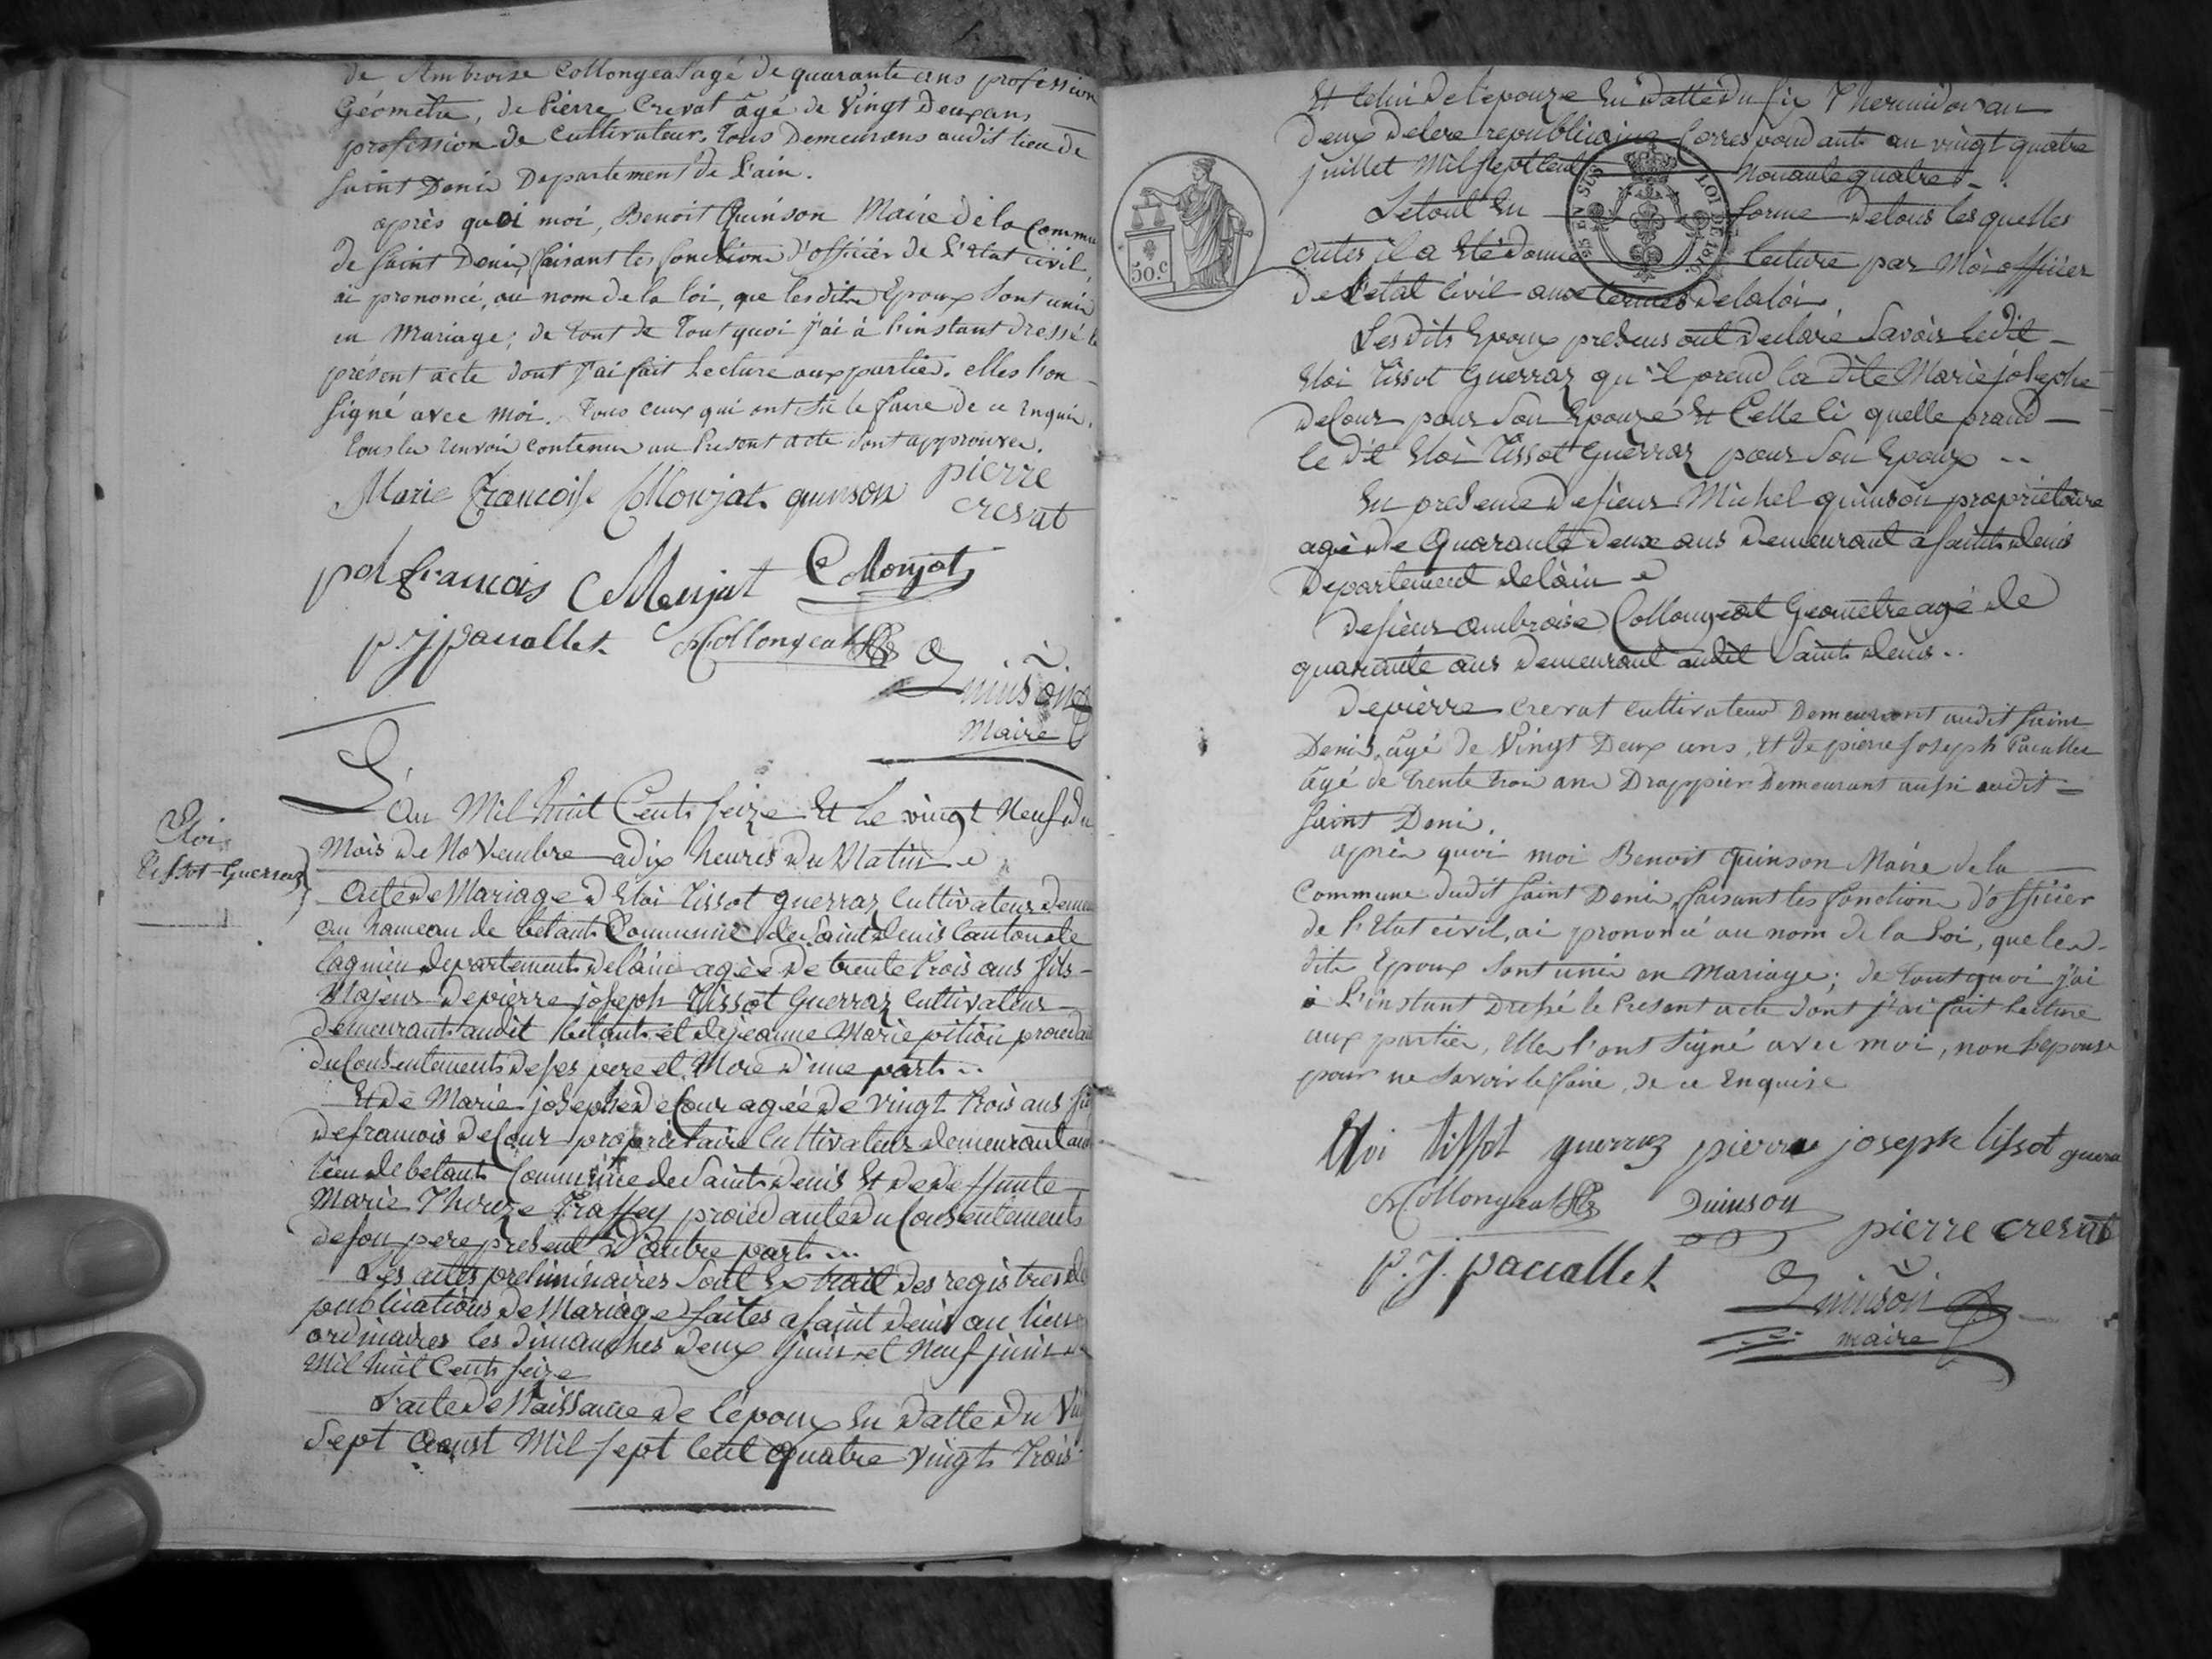 de Ambroise Collongeat agé de quarante ans profession
Géomètre, de Pierre Crevat âgé de Vingt Deux ans
profession de Cultivateur, tous Demeurans audit lieu de
Saint Denis Departement de l'ain.
après quoi moi, Benoit Quinson Maire de la Commu
de Saint Denis, faisant les fonctions d'officier de l'Etat civil,
ai prononcé, au nom de la loi, que lesdits Epoux Sont unis
en Mariage; de tout de Tout quoi j'ai à l'instant dressé le
présent acte dont j'ai fait Lecture aux parties. elles l'on
Signé avec moi. Tous ceux qui ont su le faire de ce Enquis.
Tous les renvois contenus au Présent acte sont approuvés.
Marie Francoise Collonjat quinson pierre
crevat
françois Collonjat
p. j paccallet A Collongeat
Quinson
Maire
Eloi
Tissot-Guerraz
L'an Mil huit Cents Seize Et Le vingt Neuf du
Mois de Novembre a dix heures du Matin
Acte de Mariage d'Eloi Tissot guerraz Cultivateur Demeu
au hameau de betant Commune de Saint denis Canton de
lagnieu departement de lain agée de trente trois ans fils
Majeur de pierre joseph Tissot Guerraz Cultivateur
demeurant audit betant et de jeanne Marie pition procedant
du Consentement de ses pere et Mere d'une part..
Et de Marie josephe deCour agée de vingt trois ans fi
de francois deCour proprietaire Cultivateur demeurant au
lieu de betant Commune de Saint denis Et de deffunte
Marie Thereze Traffey procedante du Consentement
de son pere present D'autre part...
Les actes preliminaires Sont Extrait des registres de
publications de Mariage faites a saint denis au lieu
ordinaires les dimanches deux juin et Neuf juin
Mil huit Cents Seize
L'acte de Naissance de l'époux En datte du Vin
Sept aoust Mil sept Cent quatre vingt trois
Et Celui de l'epouze En datte du six Thermidor an
deux de lere republicaine Correspondant au vingt quatre
juillet Mil sept Cent Nonante quatre -
30.C
Le tout En forme de tous les quelles
actes il a Eté donné lecture par Moi officier
de l'etat Civil aux termes de la loi.
Les dits Epoux presens ont declaré Savoir Ledit
Eloi Tissot Guerraz qu'il prend la dite Marie josephe
deCour pour Son Epouze Et Celle Ci quelle prand
le dit Eloi Tissot Guerraz pour Son Epoux
En presence de sieur Michel quinson proprietaire
agé de Quarante deux ans Demeurant a saint denis
Departement de lain
de sieur ambroise Collongeat Geometre agé de
quarante ans demeurant audit Saint denis..
de pierre crevat cultivateur Demeurant audit Saint
Denis, âgé de Vingt Deux ans, Et de pierre Joseph Paccallet
âgé de trente trois ans Drappier Demeurant aussi audit
Saint Denis.
après quoi moi Benoit Quinson Maire de la
Commune dudit Saint Denis, faisant les fonctions d'officier
de l'Etat civil, ai prononcé au nom de la Loi, que lesd
dits Epoux Sont unis en Mariage; de tout quoi j'ai
à L'instant Dressé le Présent acte dont j'ai fait Lecture
aux parties, Elles l'ont Signé avec moi, non l'epouse
pour ne Savoir le faire, de ce Enquise
Eloi tissot guerraz pierre joseph tissot guerra
A Collongeat Quinson pierre crevat
p. J. paccallet Quinson
maire